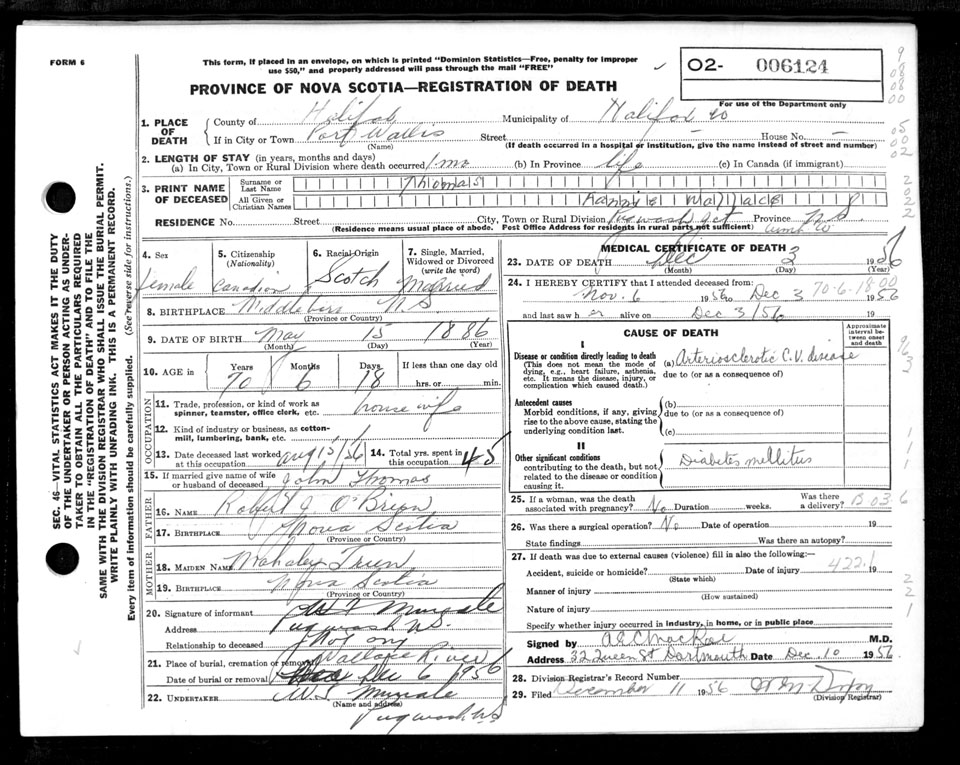 FORM 6
This form, if placed in an envelope, on which is printed "Dominion Statistics—Free, penalty for improper
use $50," and properly addressed will pass through the mail "FREE"
O2- 006124
PROVINCE OF NOVA SCOTIA—REGISTRATION OF DEATH
For use of the Department only
1. PLACE OF DEATH
County of Halifax Municipality of Halifax Co
If in City or Town Port Wallis Street – House No. –
(Name) (If death occurred in a hospital or institution, give the name instead of street and number)
2. LENGTH OF STAY (in years, months and days)
(a) In City, Town or Rural Division where death occurred 1 mo (b) In Province life (c) In Canada (if immigrant)
3. PRINT NAME OF DECEASED
Surname or Last Name Thomas
All Given or Christian Names Wallace
RESIDENCE No. Street City, Town or Rural Division Pugwash Jct Province N.S.
(Residence means usual place of abode. Post Office Address for residents in rural parts not sufficient) Cumb Co
4. Sex
female
5. Citizenship
(Nationality)
Canadian
6. Racial Origin
Scotch
7. Single, Married, Widowed or Divorced
(write the word)
Married
8. BIRTHPLACE N S
(Province or Country)
9. DATE OF BIRTH May 15 1886
(Month) (Day) (Year)
10. AGE in
Years Months Days If less than one day old
70 6 18 hrs. or min.
OCCUPATION
11. Trade, profession, or kind of work as spinner, teamster, office clerk, etc. house wife
12. Kind of industry or business, as cotton-mill, lumbering, bank, etc.
13. Date deceased last worked at this occupation Aug 15/56
14. Total yrs. spent in this occupation 45
15. If married give name of wife or husband of deceased John Thomas
FATHER
16. NAME Robert J O'Brien
17. BIRTHPLACE Nova Scotia
(Province or Country)
MOTHER
18. MAIDEN NAME
19. BIRTHPLACE Nova Scotia
(Province or Country)
20. Signature of informant
Address Pugwash N.S.
Relationship to deceased Not any
21. Place of burial, cremation or removal Wallace River
Date of burial or removal Dec 6 1956
22. UNDERTAKER
(Name and address)
Pugwash N S
MEDICAL CERTIFICATE OF DEATH
23. DATE OF DEATH Dec 3 1956
(Month) (Day) (Year)
24. I HEREBY CERTIFY that I attended deceased from:
70-6-18 00
Nov. 6 1956 to Dec 3 1956
and last saw her alive on Dec 3/56 19
CAUSE OF DEATH
Approximate interval between onset and death
I
Disease or condition directly leading to death
(This does not mean the mode of dying, e.g., heart failure, asthenia, etc. It means the disease, injury, or complication which caused death.)
(a) Arteriosclerotic C.V. disease
due to (or as a consequence of)
Antecedent causes
Morbid conditions, if any, giving rise to the above cause, stating the underlying condition last.
(b)
due to (or as a consequence of)
(c)
II
Other significant conditions
contributing to the death, but not related to the disease or condition causing it.
Diabetes mellitus
25. If a woman, was the death associated with pregnancy? No Duration weeks. Was there a delivery?
B 036
26. Was there a surgical operation? No Date of operation 19
State findings Was there an autopsy?
27. If death was due to external causes (violence) fill in also the following:—
Accident, suicide or homicide? Date of injury 422.1 19
(State which)
Manner of injury
(How sustained)
Nature of injury
Specify whether injury occurred in industry, in home, or in public place
Signed by M.D.
Address 32 Queen St Dartmouth Date Dec. 10 1956
28. Division Registrar's Record Number
29. Filed December 11 1956
(Division Registrar)
SEC. 46—VITAL STATISTICS ACT MAKES IT THE DUTY
OF THE UNDERTAKER OR PERSON ACTING AS UNDER-
TAKER TO OBTAIN ALL THE PARTICULARS REQUIRED
IN THE "REGISTRATION OF DEATH" AND TO FILE THE
SAME WITH THE DIVISION REGISTRAR WHO SHALL ISSUE THE BURIAL PERMIT.
WRITE PLAINLY WITH UNFADING INK. THIS IS A PERMANENT RECORD.
Every item of information should be carefully supplied. (See reverse side for instructions.)